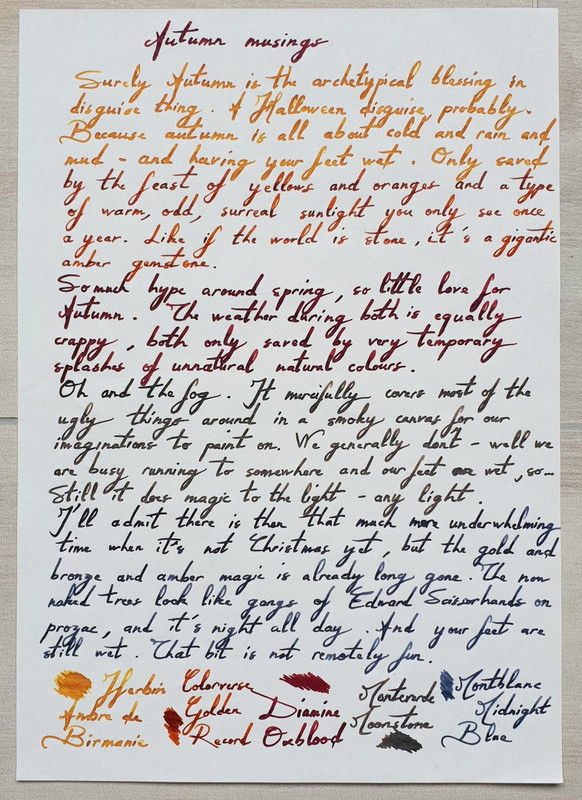 Autumn musings
Surely Autumn is the archetypical blessing in
disguise thing. A Halloween disguise, probably.
Because autumn is all about cold and rain and
mud - and having your feet wet. Only saved
by the feast of yellows and oranges and a type
of warm, odd, surreal sunlight you only see once
a year. Like if the world is stone, it's a gigantic
amber gemstone.
So much hype around spring, so little love for
Autumn. The weather during both is equally
crappy, both only saved by very temporary
splashes of unnatural natural colours.
Oh and the fog. It mercifully covers most of the
ugly things around in a smoky canvas for our
imaginations to paint on. We generally don't - well we
are busy running to somewhere and our feet are wet, so...
Still it does magic to the light - any light.
I'll admit there is then that much more underwhelming
time when it's not Christmas yet, but the gold and
bronze and amber magic is already long gone. The now
naked trees look like gangs of Edward Scissorhands on
prozac, and it's night all day. And your feet are
still wet. That bit is not remotely fun.
Herbin
Ambre de
Birmanie
Colorverse
Golden
Record
Diamine
Oxblood
Monteverde
Moonstone
Montblanc
Midnight
Blue